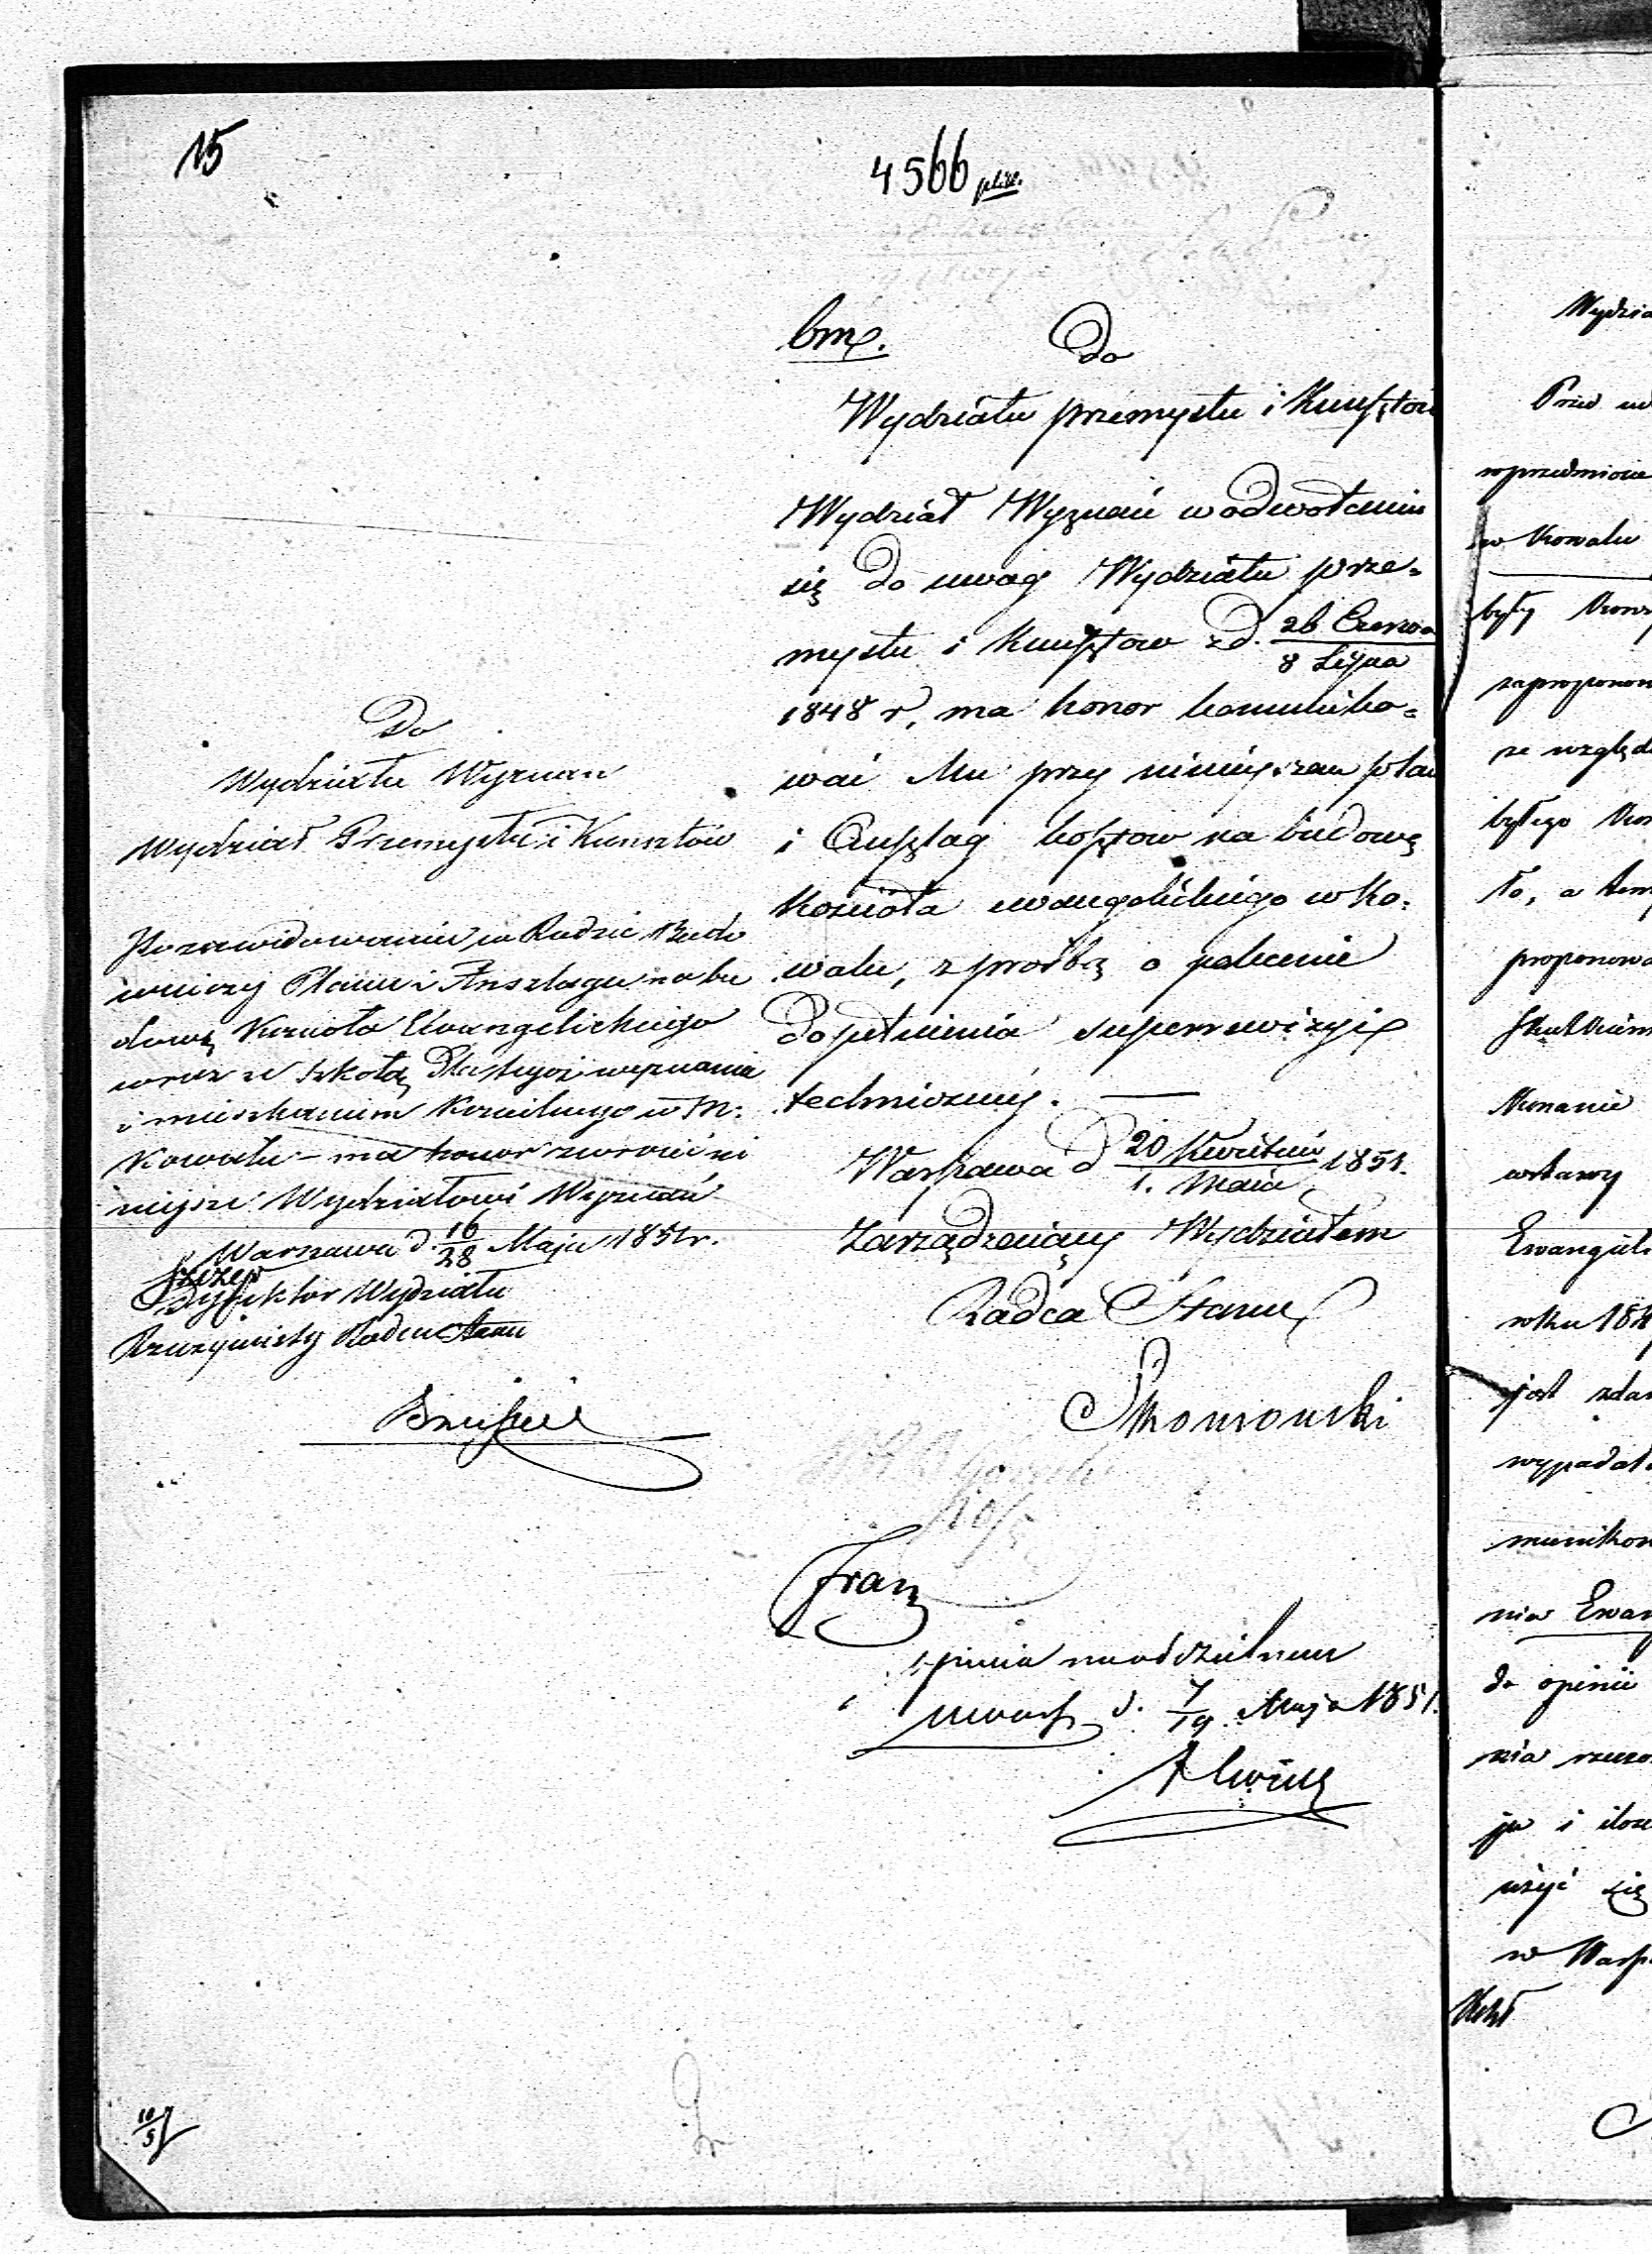 15
4566
bmp.
Do
Wydziału przemysłu i Kunsztów
Wydział Wyznań w odwołaniu
się do uwag Wydziału prze=
mysłu i Kunsztow z d. 26 Czerwca
8 Lipca
1848 r, ma honor komuniko=
wać Mu przy niniejszem plan
i Anszlag kosztow na budowę
Kościoła ewangelickiego w Ko=
walu, z prośbą o polecenie
dopełnienia superrewizyi
technicznej. —
Warszawa d 20 Kwietnia
1. Maia 1851.
Zarządzaiący Wydziałem
Radca Stanu
Franz
opinia na oddzielnem
d. 7/19 Maja 1851.
Do
Wydziału Wyznan
Wydział Przemysłu i Kunsztów
Po zrewidowaniu w Radzie Budo
wniczej Planu i Anszlagu na bu
dowę Kościoła Ewangelickiego
wraz ze szkołą dla tegoż wyznania
i mieszkaniem Kościelnego w M.
Kowalu – ma honor zwrocić ni
niejsze Wydziałowi Wyznań
Warszawa d. 16/28 Maja 1851 r.
Dyrektor Wydziału
Rzeczywisty Radca Stanu
10/5
Wydzia
w Kowalu
były
ze względ
byłego
to, a
Mniemanie
wstawy
roku 184
jest
wypadał
nia Ewan
do opinii
użyć się
w Warsz